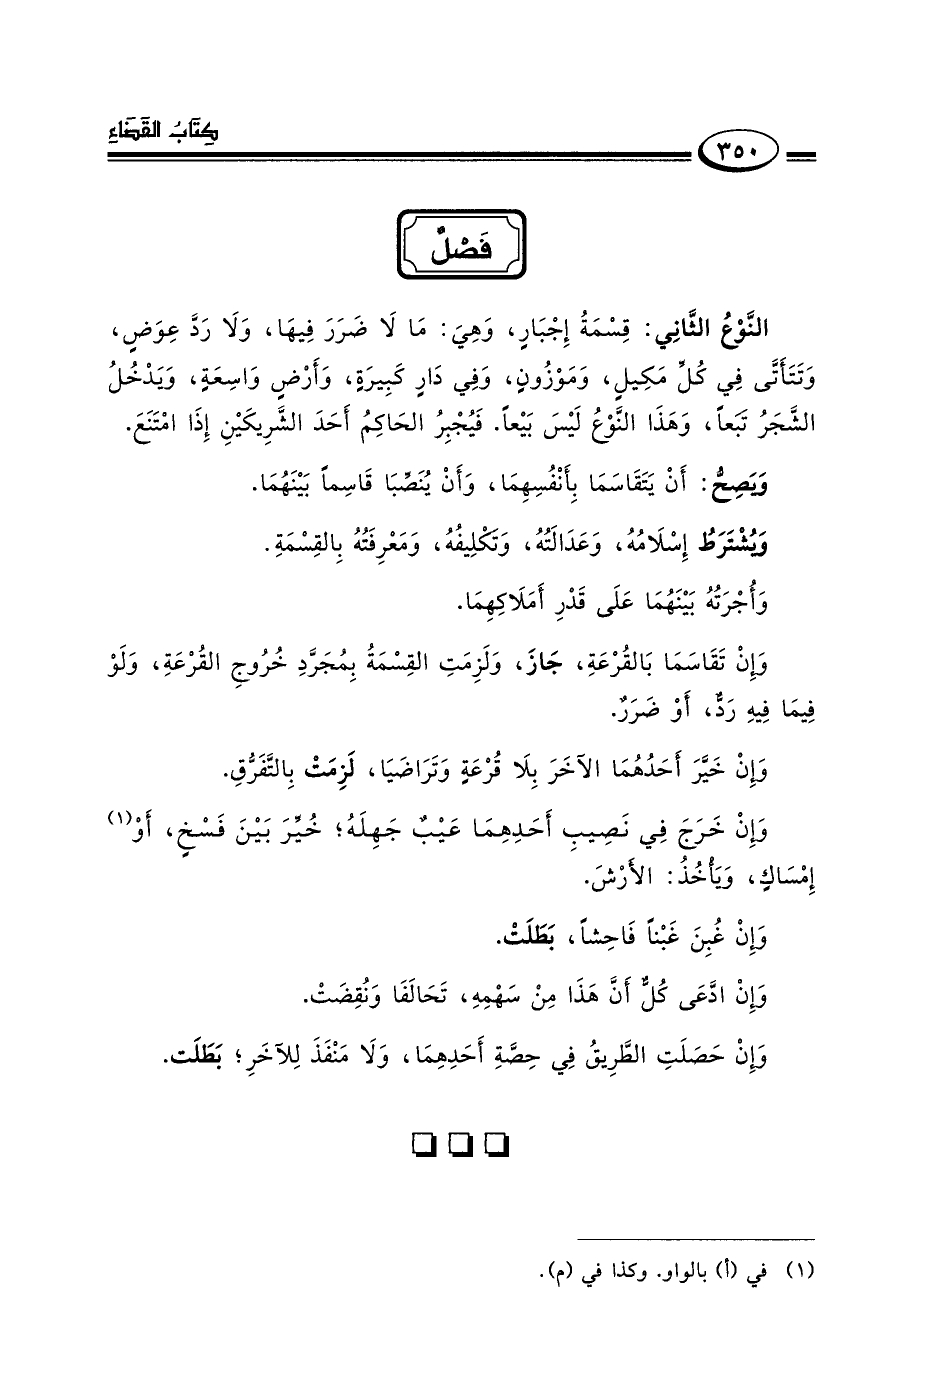 كِتَابُ القَضَاءِ
٣٥٠
فَصْلٌ
النَّوْعُ الثَّانِي: قِسْمَةُ إِجْبَارٍ، وَهِيَ: مَا لَا ضَرَرَ فِيهَا، وَلَا رَدَّ عِوَضٍ،
وَتَتَأَتَّى فِي كُلِّ مَكِيلٍ، وَمَوْزُونٍ، وَفِي دَارٍ كَبِيرَةٍ، وَأَرْضٍ وَاسِعَةٍ، وَيَدْخُلُ
الشَّجَرُ تَبَعاً، وَهَذَا النَّوْعُ لَيْسَ بَيْعاً. فَيُجْبِرُ الحَاكِمُ أَحَدَ الشَّرِيكَيْنِ إِذَا امْتَنَعَ.
وَيَصِحُّ: أَنْ يَتَقَاسَمَا بِأَنْفُسِهِمَا، وَأَنْ يُنَصِّبَا قَاسِماً بَيْنَهُمَا.
وَيُشْتَرَطُ إِسْلَامُهُ، وَعَدَالَتُهُ، وَتَكْلِيفُهُ، وَمَعْرِفَتُهُ بِالقِسْمَةِ.
وَأُجْرَتُهُ بَيْنَهُمَا عَلَى قَدْرِ أَمَلَاكِهِمَا.
وَإِنْ تَقَاسَمَا بَالقُرْعَةِ، جَازَ، وَلَزِمَتِ القِسْمَةُ بِمُجَرَّدِ خُرُوجِ القُرْعَةِ، وَلَوْ
فِيمَا فِيهِ رَدٌّ، أَوْ ضَرَرٌ.
وَإِنْ خَيَّرَ أَحَدُهُمَا الآخَرَ بِلَا قُرْعَةٍ وَتَرَاضَيَا، لَزِمَتْ بِالتَّفَرُّقِ.
وَإِنْ خَرَجَ فِي نَصِيبِ أَحَدِهِمَا عَيْبٌ جَهِلَهُ؛ خُيِّرَ بَيْنَ فَسْخٍ، أَوْ(١)
إِمْسَاكٍ، وَيَأْخُذُ: الأَرْشَ.
وَإِنْ غُبِنَ غَبْناً فَاحِشاً، بَطَلَتْ.
وَإِنْ ادَّعَى كُلٌّ أَنَّ هَذَا مِنْ سَهْمِهِ، تَحَالَفَا وَنُقِضَتْ.
وَإِنْ حَصَلَتِ الطَّرِيقُ فِي حِصَّةِ أَحَدِهِمَا، وَلَا مَنْفَذَ لِلآخَرِ؛ بَطَلَت.
(١) في (أ) بالواو. وكذا في (م).